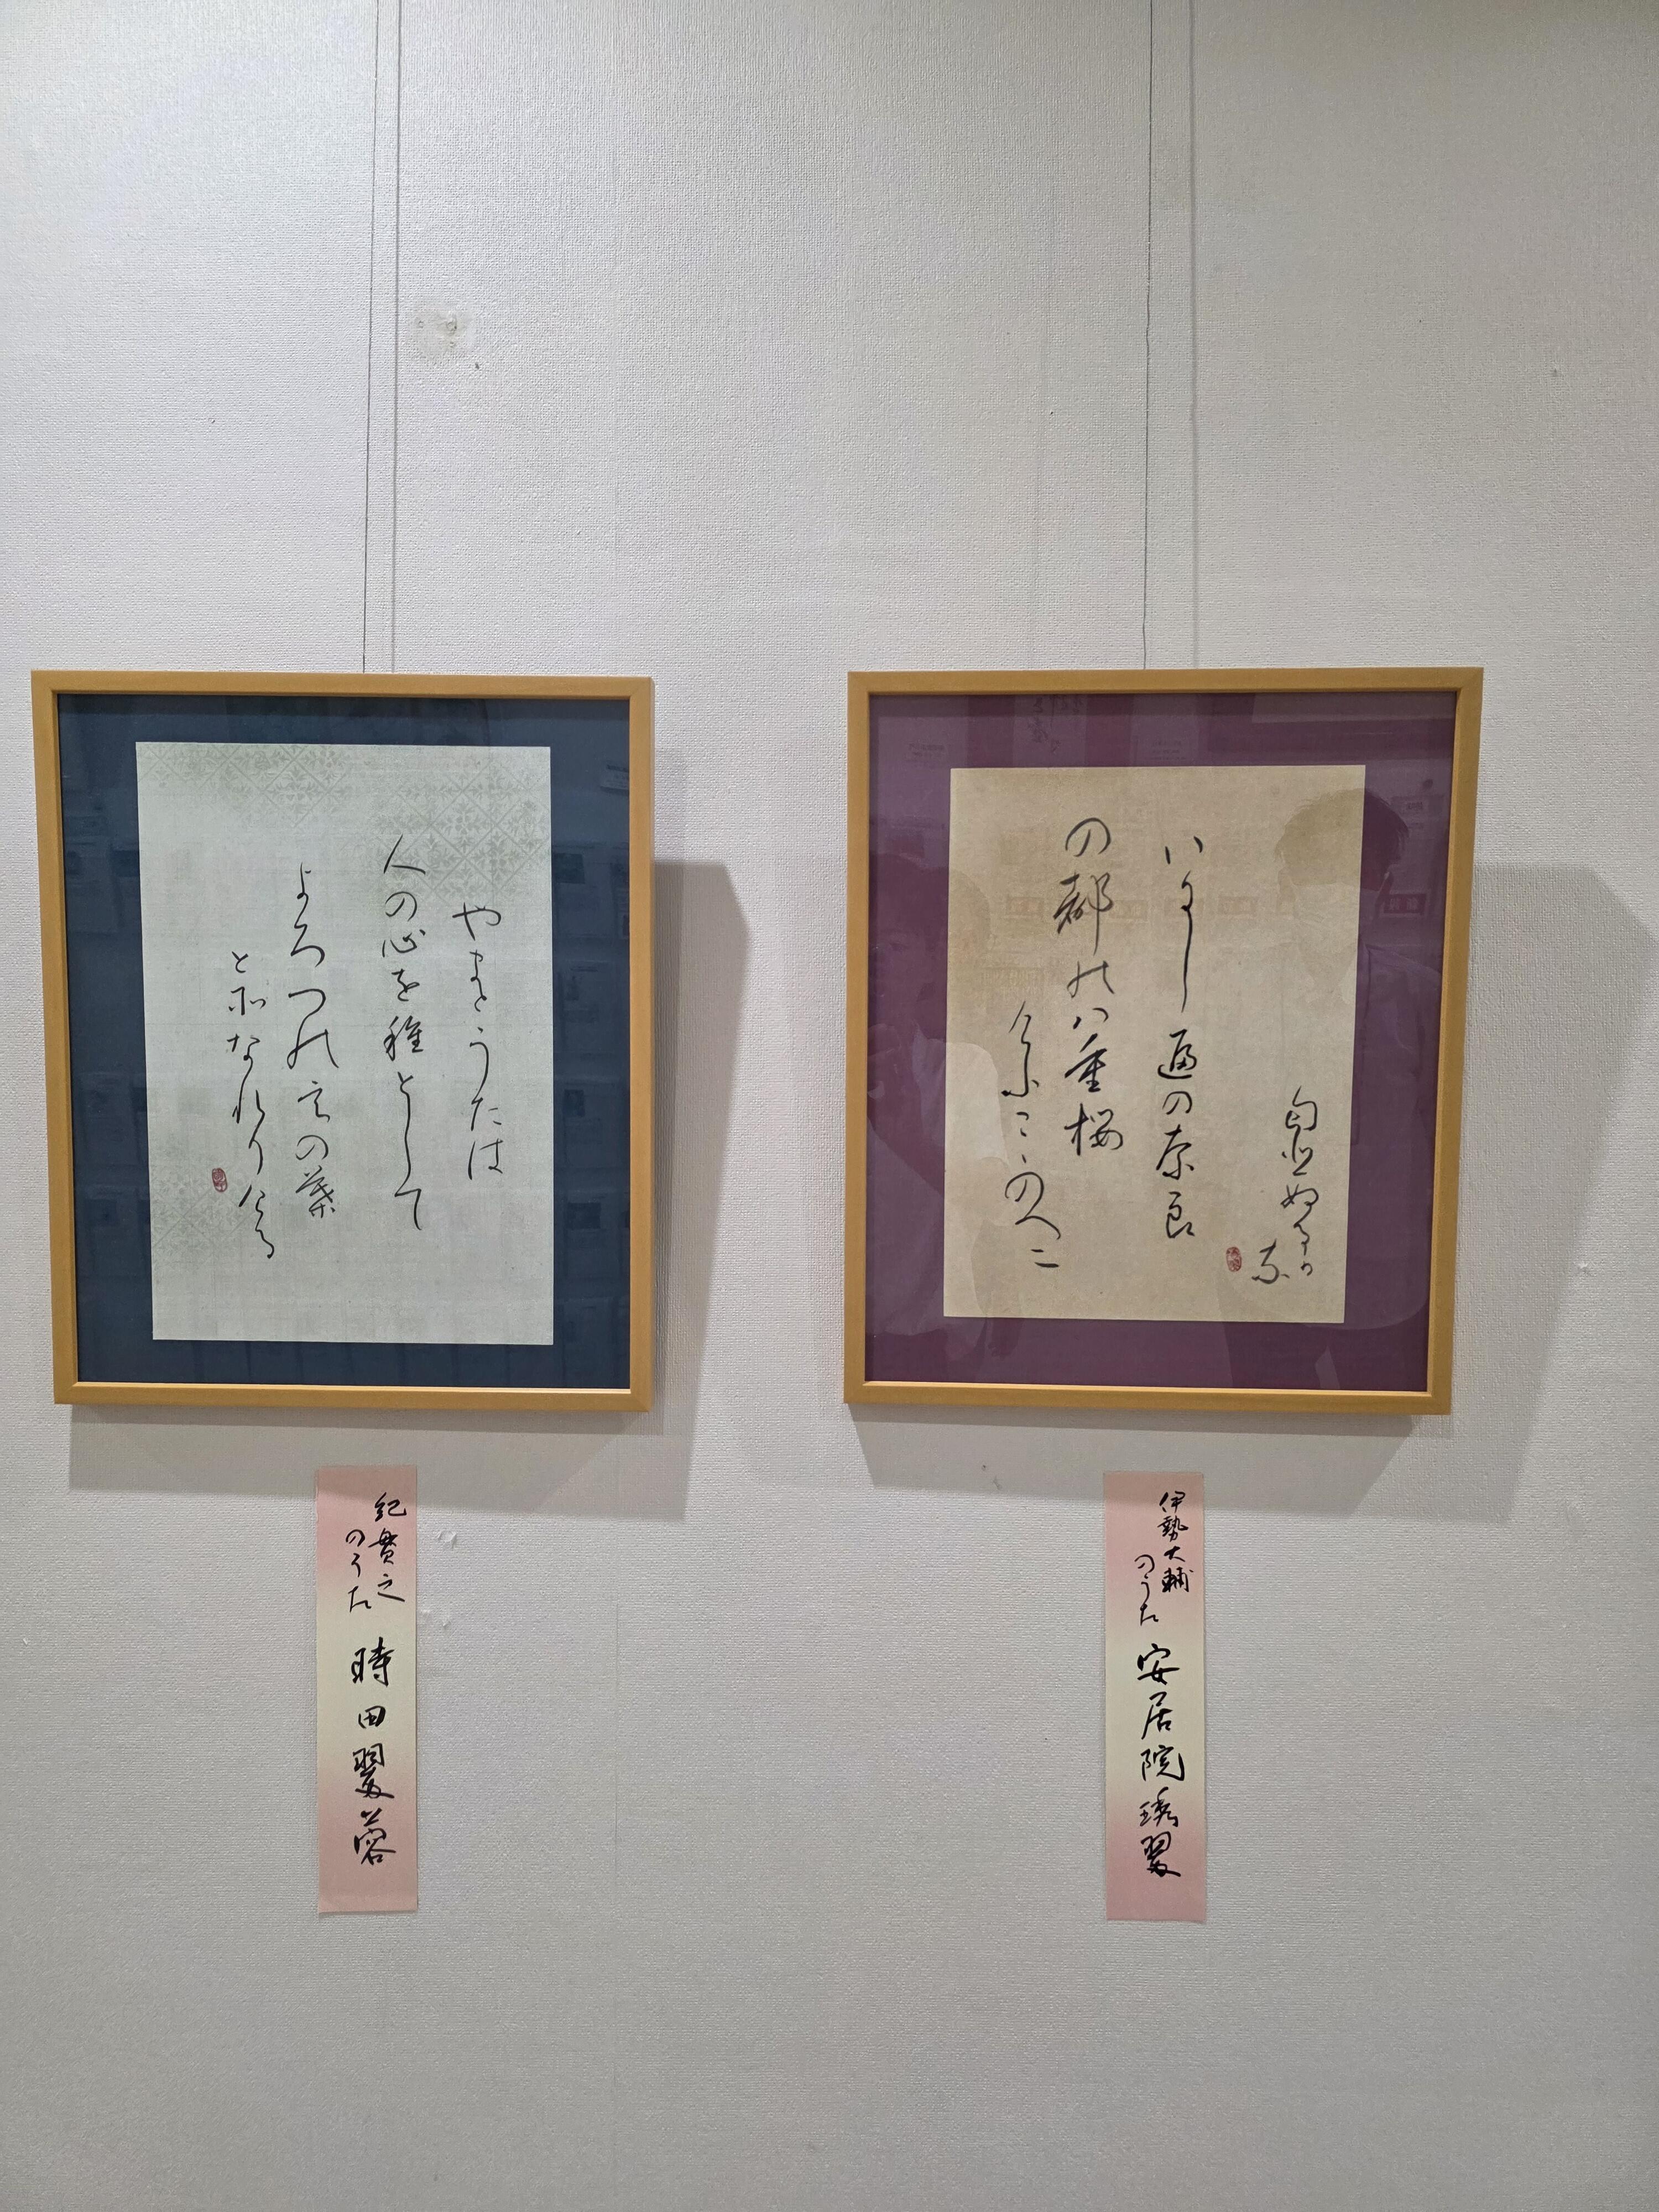 いにし遍の奈良
の都能八重桜
けふこゝのへ二
匂比ぬる可
奈
伊勢大輔
のうた
安居院琇翠
やまとうたは
人の心を種として
よろつ能言の葉
と所なれりける
紀貫之
のうた
時田翠蓉